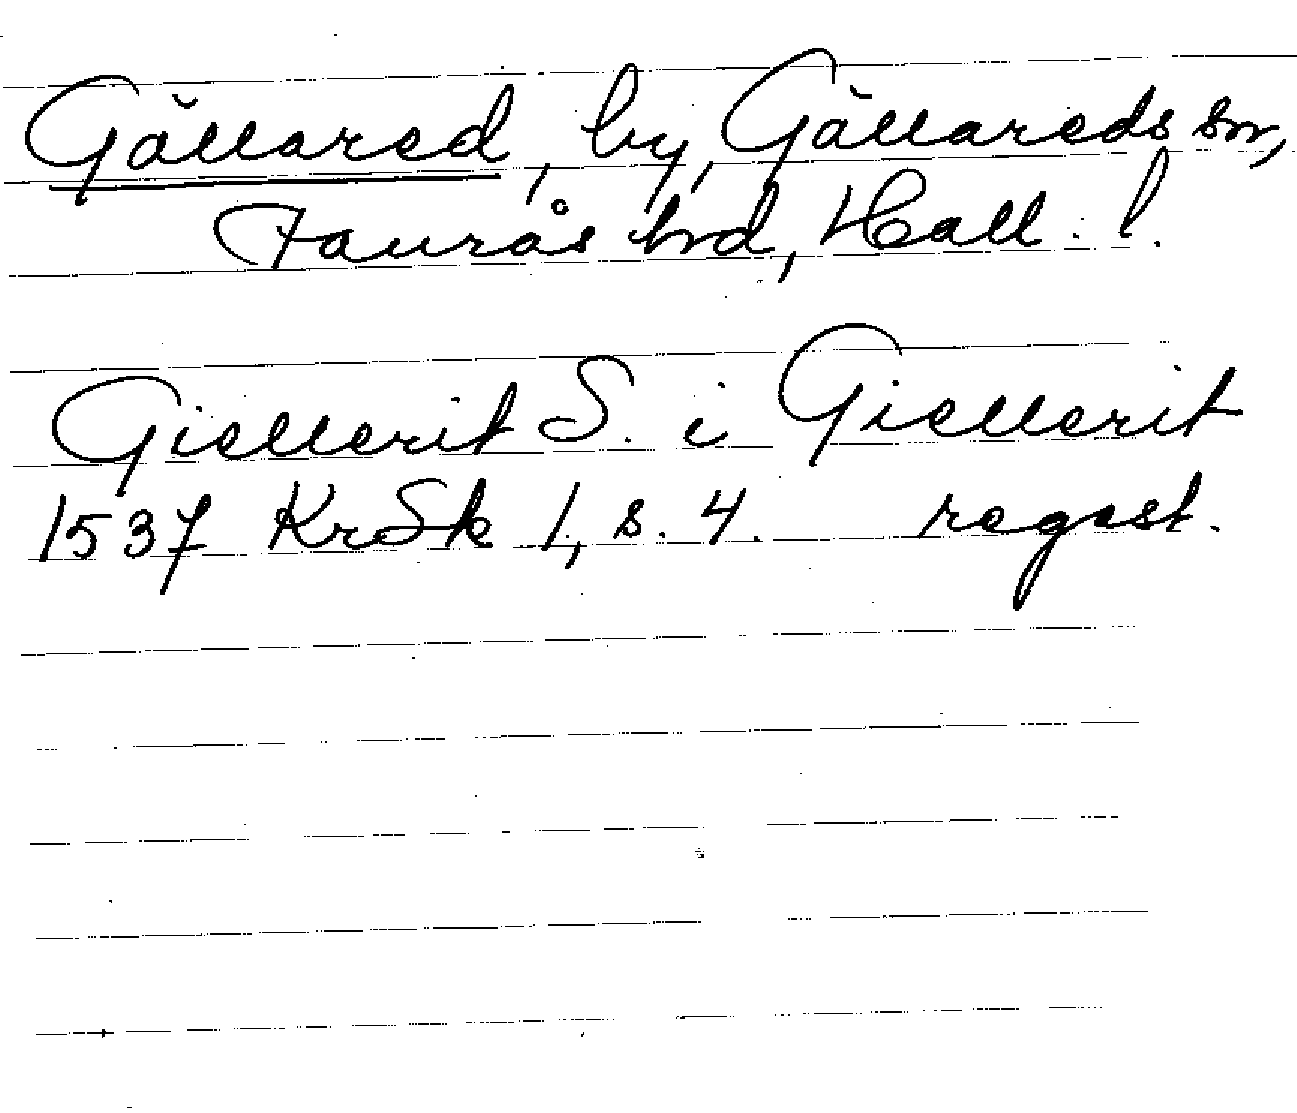 Gällared, by, Gällareds sn,
Faurås hrd, Hall. l.
Giellerit S. i Giellerit
1537 KrSk 1, s. 4. regest.